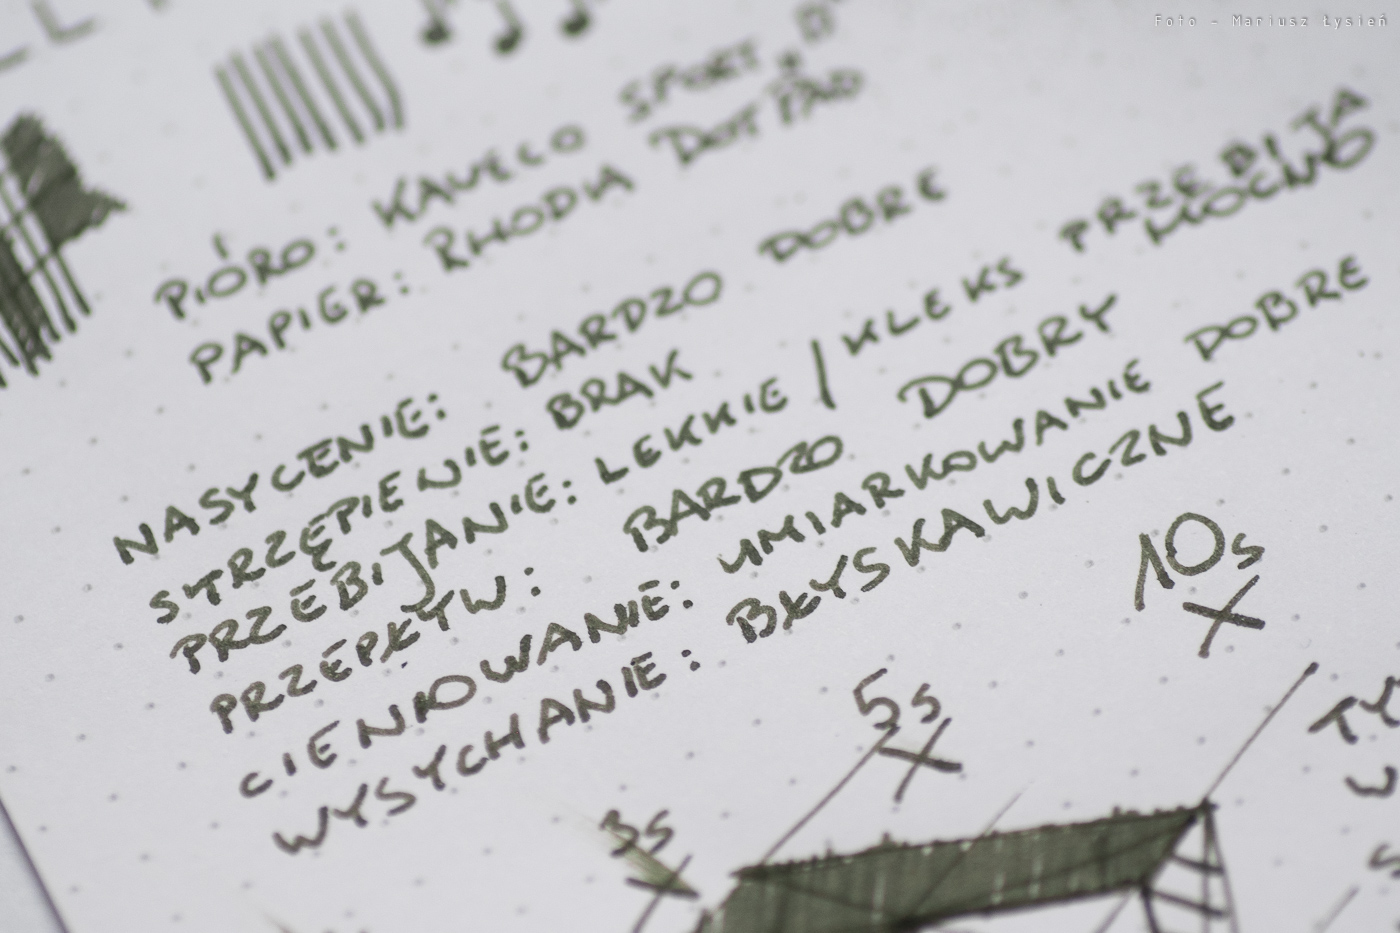 Foto - Mariusz Łysień
PIÓRO: KAWECO SPORT „B"
PAPIER: RHODIA DOTPAD
NASYCENIE: BARDZO DOBRE
STRZĘPIENIE: BRAK
PRZEBIJANIE: LEKKIE / KLEKS PRZEBIJA MOCNO
PRZEPŁYW: BARDZO DOBRY
CIENIOWANIE: UMIARKOWANIE DOBRE
WYSYCHANIE: BŁYSKAWICZNE
10s
5s
3s